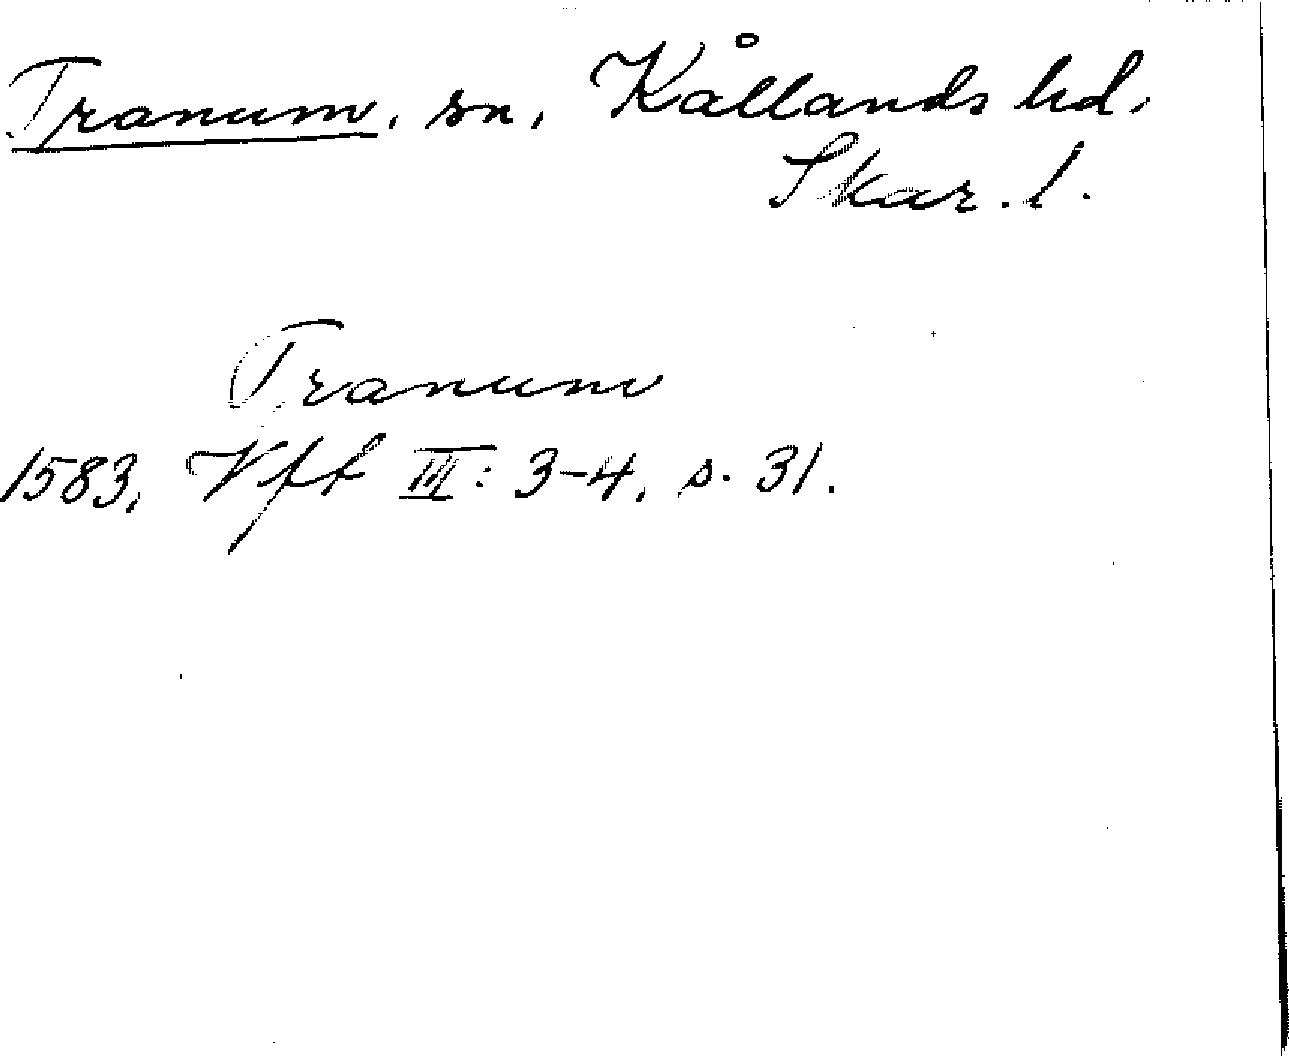 Tranum, sn, Kållands hd,
Skar. l.
Tranum
1583, Vft III: 3-4, s. 31.